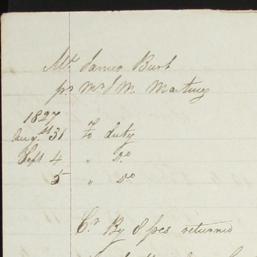 Mr James Burt
pr Mr J M. Martiney
1827
Augst 31 To duty
Sept 4 " Do
5 " do
Cr By 8 pcs returned